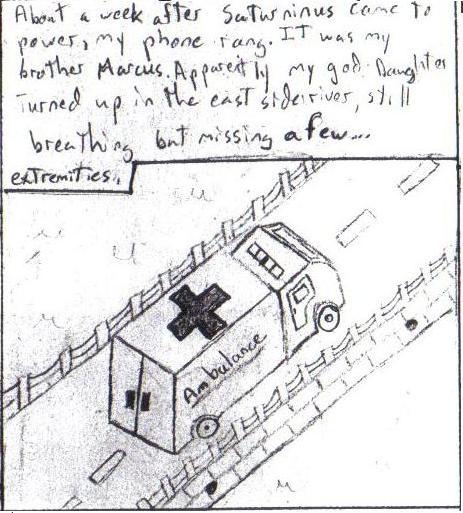 About a week after Saturninus came to
power, my phone rang. IT was my
brother Marcus. Apparently my god Daughter
Turned up in the east side river, still
breathing but missing a few...
extremities.
Ambulance